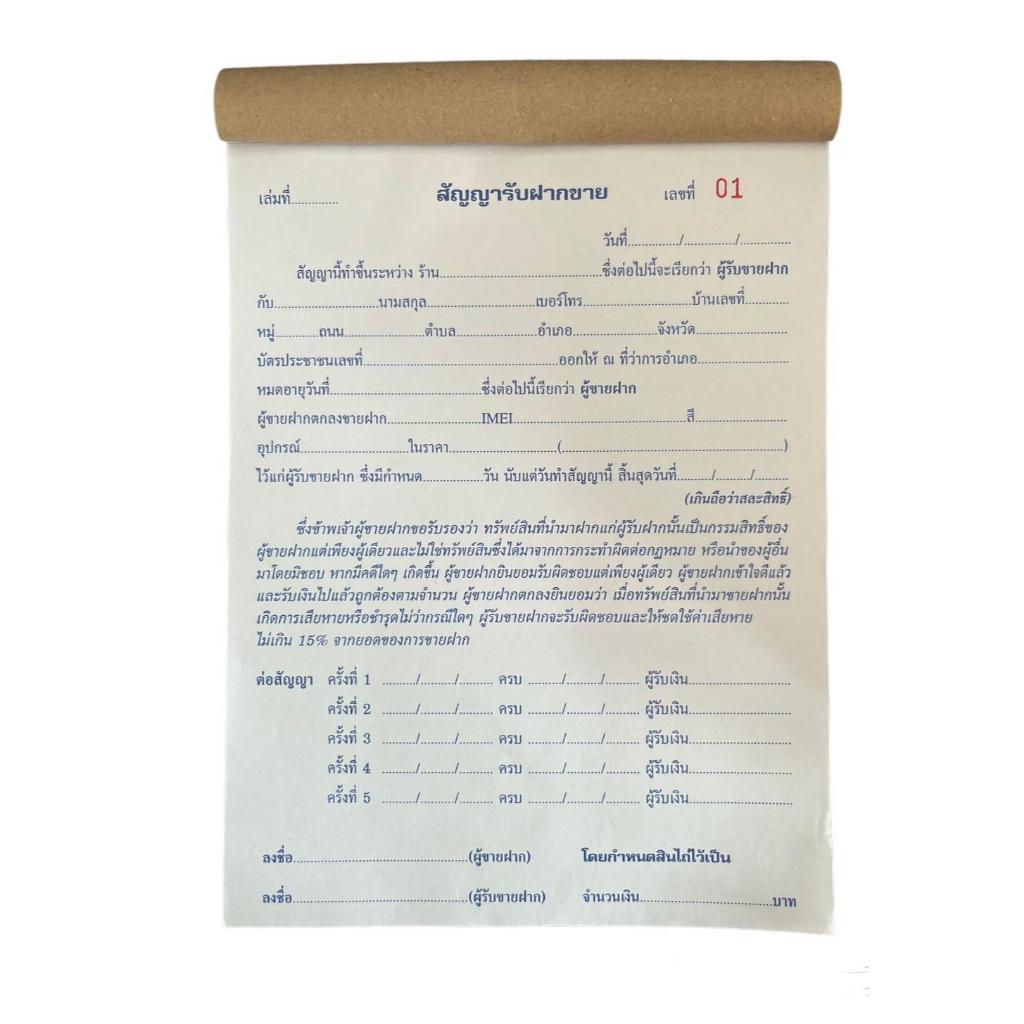 เล่มที่............. สัญญารับฝากขาย เลขที่ 01
วันที่............../............../..............
สัญญานี้ทำขึ้นระหว่าง ร้าน..........................................ซึ่งต่อไปนี้จะเรียกว่า ผู้รับขายฝาก
กับ...........................นามสกุล............................เบอร์โทร............................บ้านเลขที่...........
หมู่...........ถนน.....................ตำบล.....................อำเภอ......................จังหวัด........................
บัตรประชาชนเลขที่..................................................ออกให้ ณ ที่ว่าการอำเภอ........................
หมดอายุวันที่.......................................ซึ่งต่อไปนี้เรียกว่า ผู้ขายฝาก
ผู้ขายฝากตกลงขายฝาก........................IMEI............................................สี........................
อุปกรณ์............................ในราคา............................(..........................................................)
ไว้แก่ผู้รับขายฝาก ซึ่งมีกำหนด................วัน นับแต่วันทำสัญญานี้ สิ้นสุดวันที่........./........./.........
(เกินถือว่าสละสิทธิ์)
ซึ่งข้าพเจ้าผู้ขายฝากขอรับรองว่า ทรัพย์สินที่นำมาฝากแก่ผู้รับฝากนั้นเป็นกรรมสิทธิ์ของ
ผู้ขายฝากแต่เพียงผู้เดียวและไม่ใช่ทรัพย์สินซึ่งได้มาจากการกระทำผิดต่อกฎหมาย หรือนำของผู้อื่น
มาโดยมิชอบ หากมีคดีใดๆ เกิดขึ้น ผู้ขายฝากยินยอมรับผิดชอบแต่เพียงผู้เดียว ผู้ขายฝากเข้าใจดีแล้ว
และรับเงินไปแล้วถูกต้องตามจำนวน ผู้ขายฝากตกลงยินยอมว่า เมื่อทรัพย์สินที่นำมาขายฝากนั้น
เกิดการเสียหายหรือชำรุดไม่ว่ากรณีใดๆ ผู้รับขายฝากจะรับผิดชอบและให้ชดใช้ค่าเสียหาย
ไม่เกิน 15% จากยอดของการขายฝาก
ต่อสัญญา ครั้งที่ 1 ........./........./......... ครบ ........./........./......... ผู้รับเงิน..........................
ครั้งที่ 2 ........./........./......... ครบ ........./........./......... ผู้รับเงิน..........................
ครั้งที่ 3 ........./........./......... ครบ ........./........./......... ผู้รับเงิน..........................
ครั้งที่ 4 ........./........./......... ครบ ........./........./......... ผู้รับเงิน..........................
ครั้งที่ 5 ........./........./......... ครบ ........./........./......... ผู้รับเงิน..........................
ลงชื่อ.............................................(ผู้ขายฝาก) โดยกำหนดสินไถ่ไว้เป็น
ลงชื่อ.............................................(ผู้รับขายฝาก) จำนวนเงิน..................................บาท